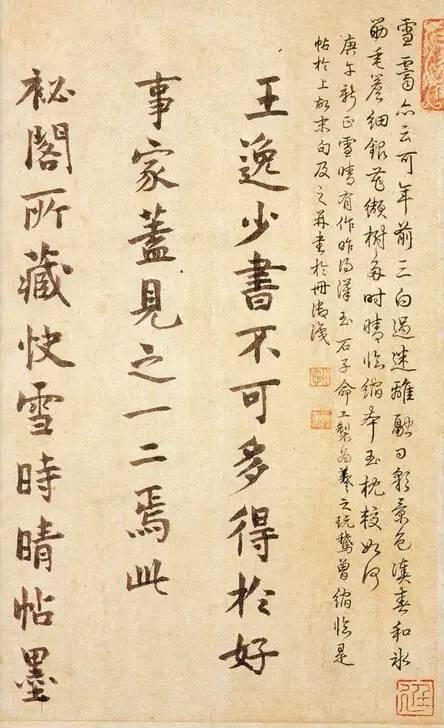 雪霽亦云可年前三白過迷離融日彩景色漾春和冰
筯垂簷細銀花纈樹多時晴臨縮本玉枕較如何
庚午新正雪晴有作昨得漢玉石子命工製為羲之玩鵝曾縮臨是
帖於上故末句及之并書於冊御識
王逸少書不可多得於好
事家蓋見之一二焉此
祕閣所藏快雪時晴帖墨